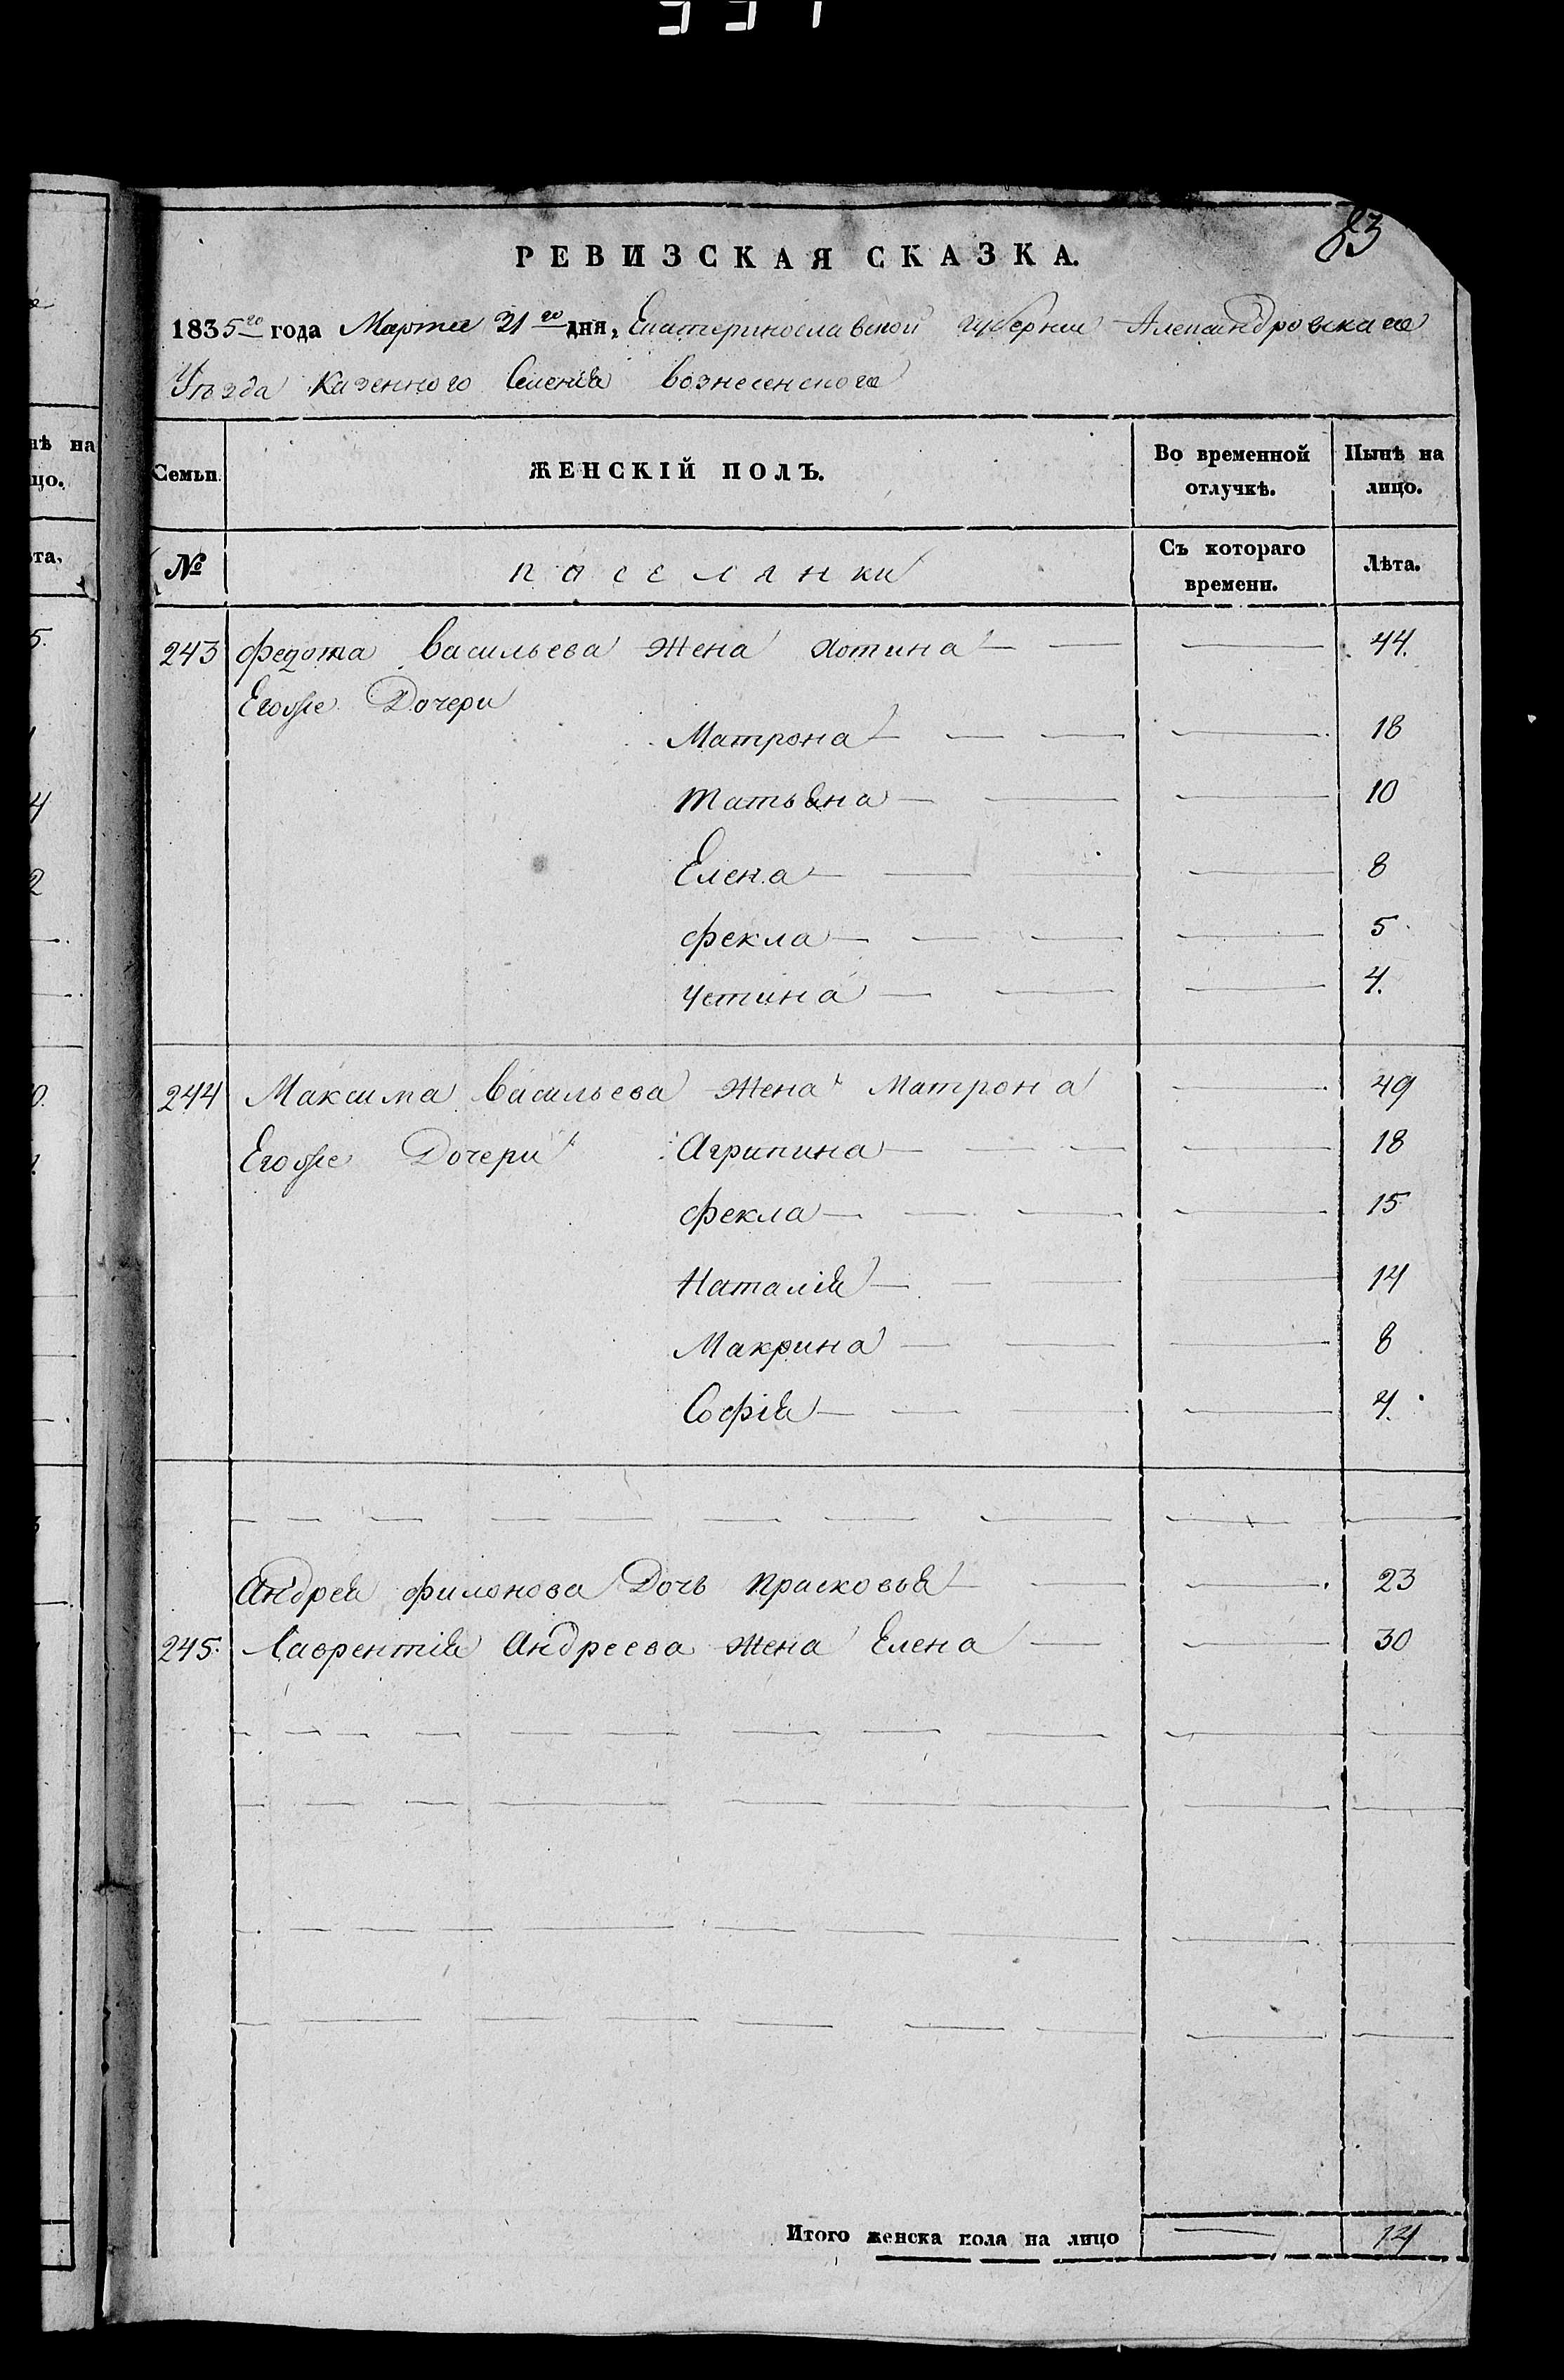 83
РЕВИЗСКАЯ СКАЗКА.
1835го года Марта 31го дня, Екатеринославской Губернии Александровскаго
Уѣзда Казенного Селенія Вознесенского
Семьи
ЖЕНСКІЙ ПОЛЪ.
Во временной отлучкѣ.
Нынѣ на лицо.
№
поселянки
Съ котораго времени.
Лѣта.
243 Федота Васильева Жена Хотина — — — 44.
Егоже Дочери
Матрона — — — — 18
Татьяна — — — 10
Елена — — — — 8
Фекла — — — — 5
Устина — — — 4.
244 Максима Васильева Жена Матрона — 49
Егоже Дочери Агрипина — — — — 18
Фекла — — — — 15
Наталія — — — — 14
Макрина — — — 8
Софія — — — — 4.
Андрея Филонова Дочь Прасковья — — — 23
245. Лаврентія Андреева Жена Елена — — 30
Итого женска пола на лицо — 14